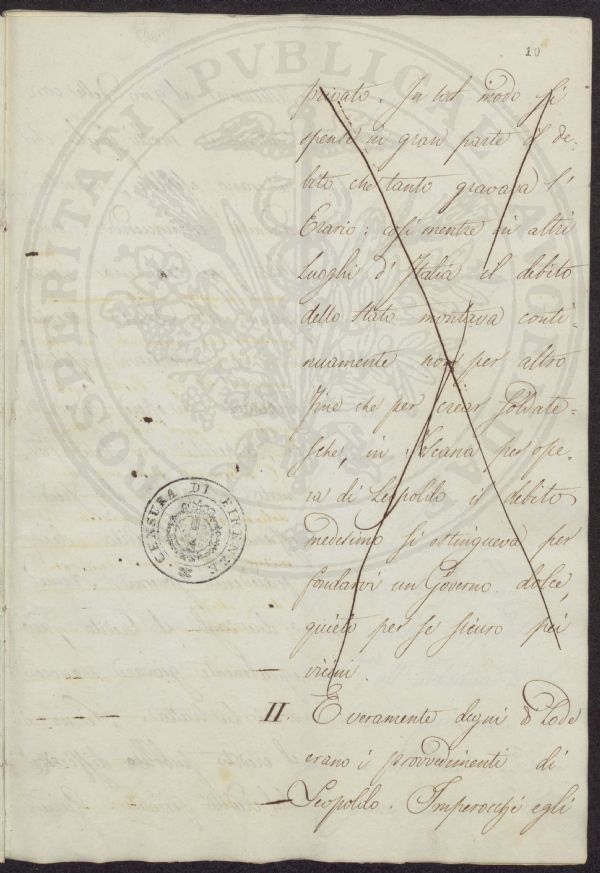 10
privato. In tal modo si
spense in gran parte il de:
bito che tanto gravava l'
Erario: così mentre in altri
Luoghi d'Italia il debito
dello Stato montava conti:
nuamente non per altro
fine che per crear Soldate:
sche, in Toscana per ope:
ra di Leopoldo il debito
medesimo si estingueva per
fondarvi un Governo dolce,
quieto per se sicuro pei
vicini.
II. E veramente degni di Lode
erano i provvedimenti di
Leopoldo. Imperocchè egli
CENSURA DI FIRENZE
PROSPERITATI PUBLICAE